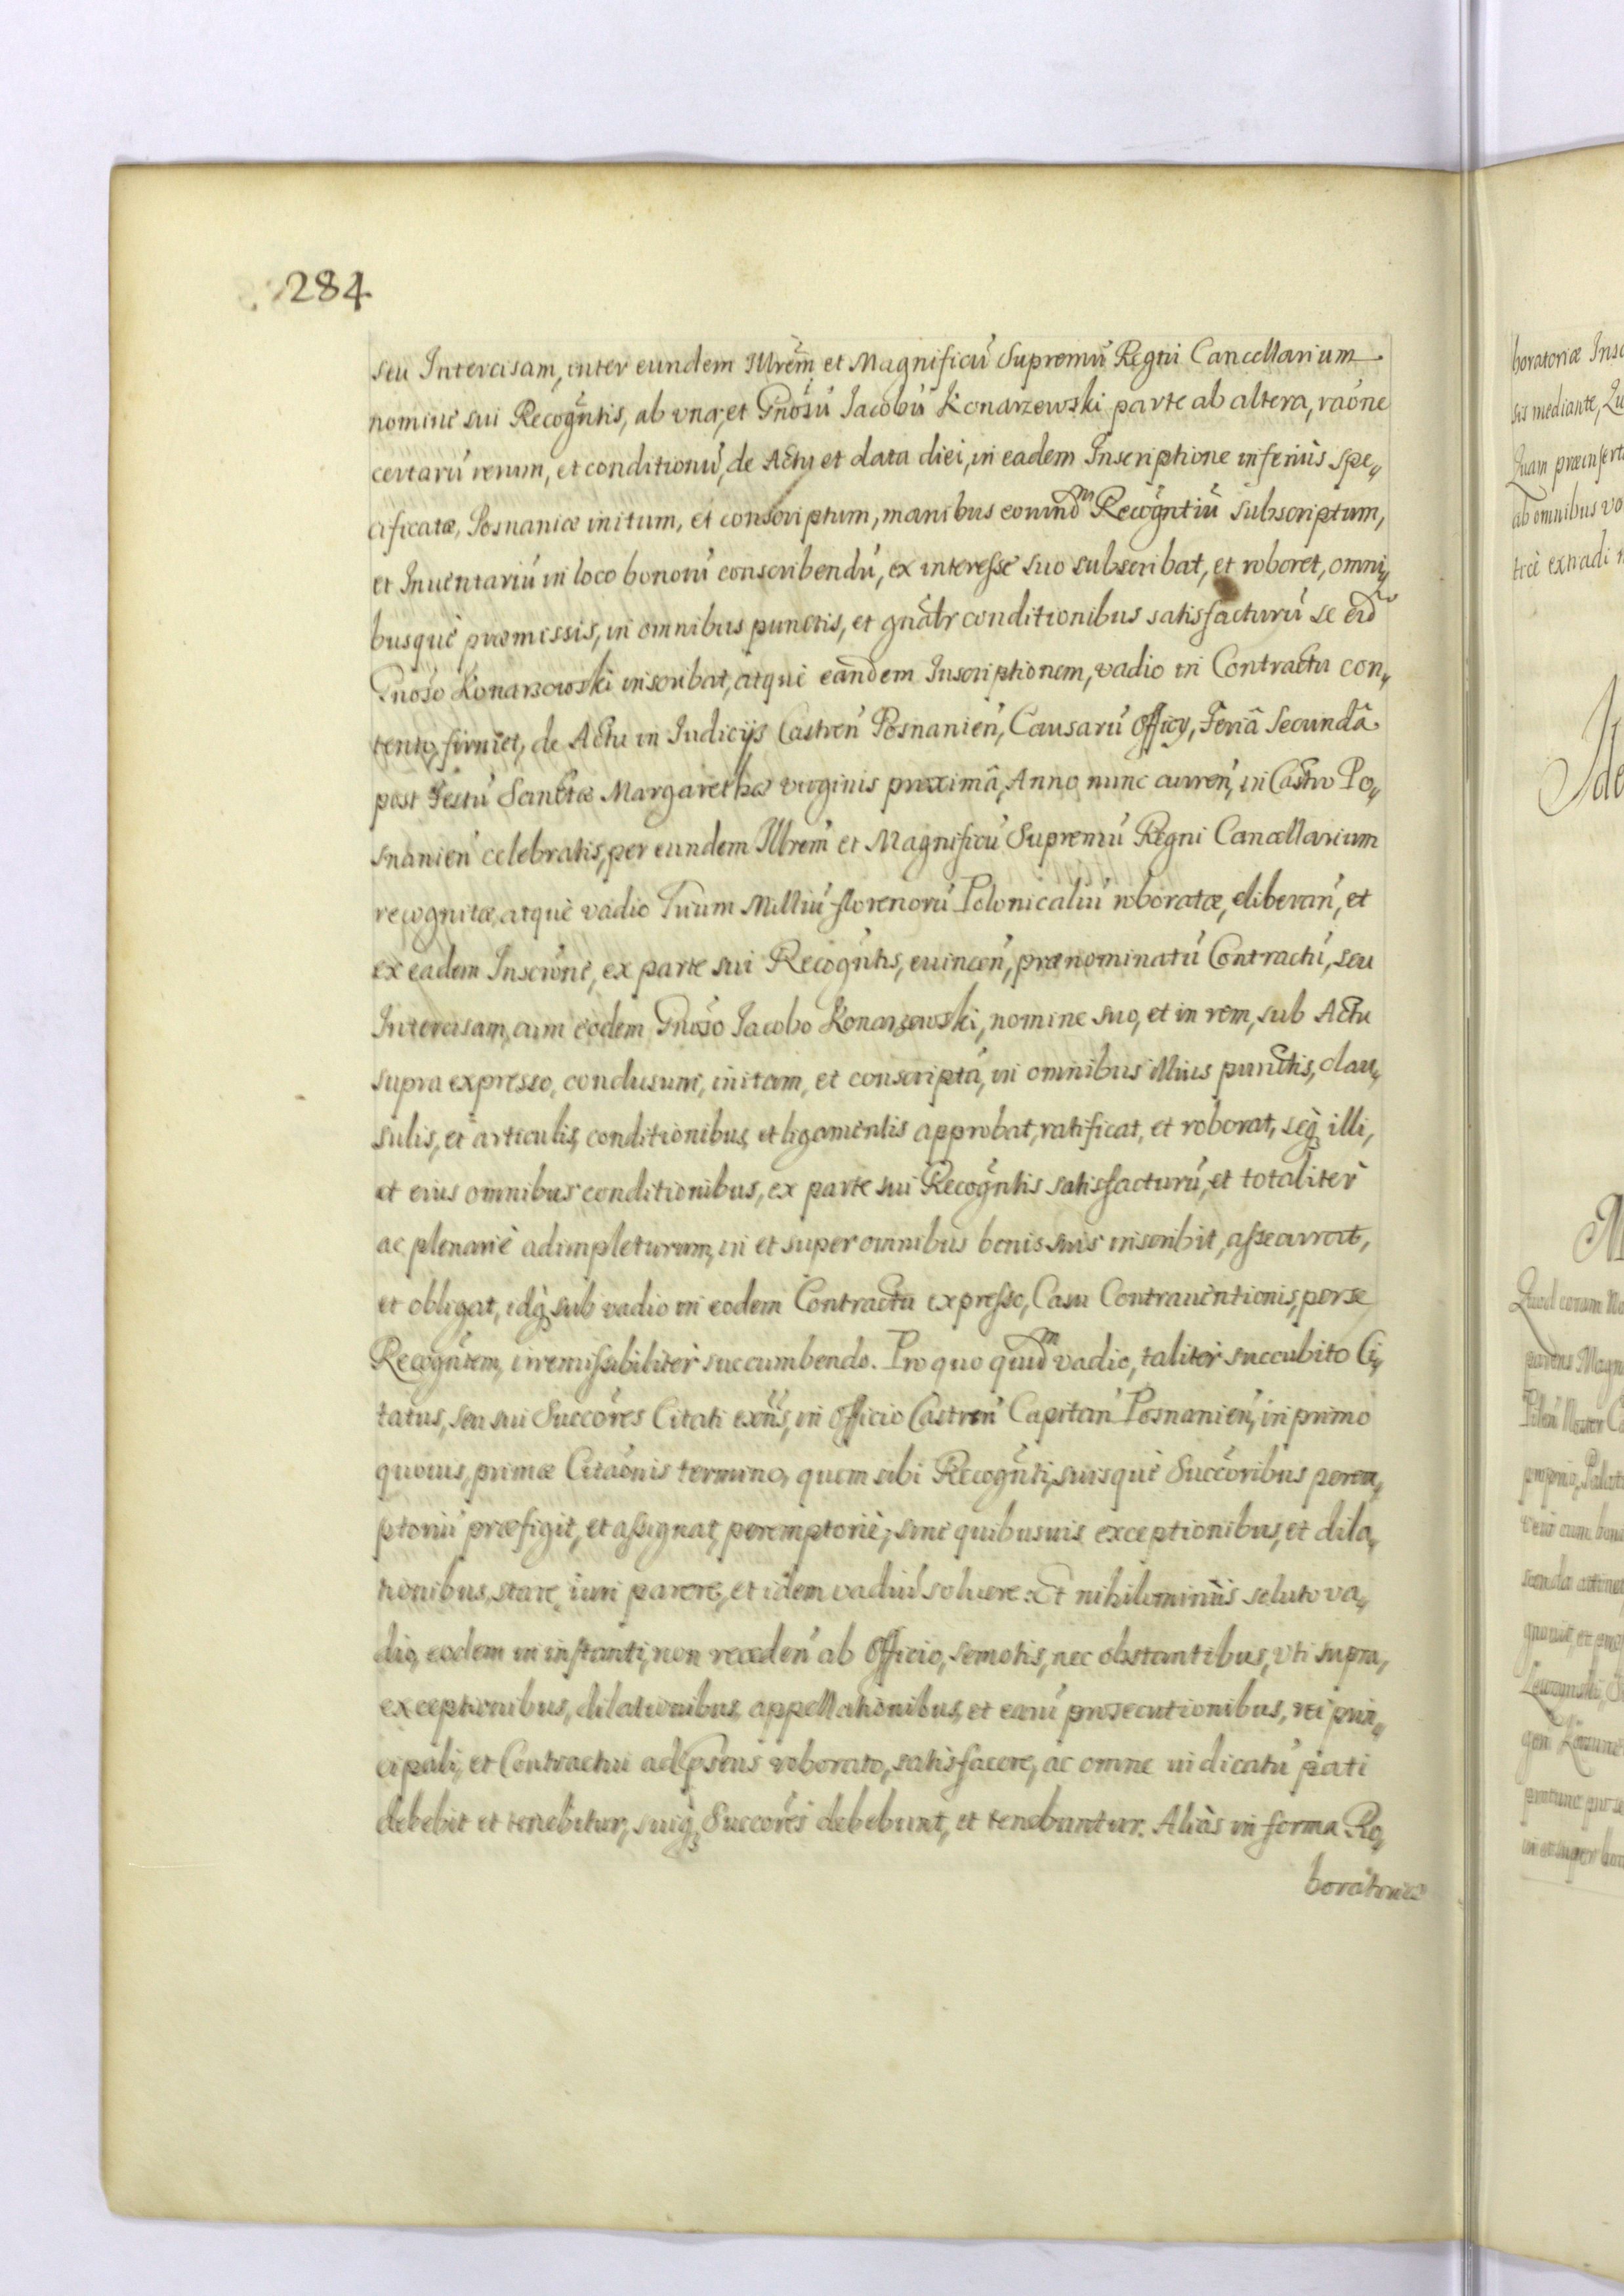 284
seu Intercisam, inter eundem Illrem̃ et Magnificũ Supremũ Regni Cancellarium
nominè sui Recogñtis, ab vna, et Gnõsũ Jacobũ Konarzewski parte ab altera, raõne
certarũ rerum, et conditionũ, de Actu et data diei, in eadem Inscriptione inferiùs spe„
cificatæ, Posnaniæ initum, et conscriptum, manibus eorund̃m Recogñtiũ subscriptum,
et Inuentariũ in loco bonorũ conscribendũ, ex interesse suo subscribat, et roboret, omni„
busquè præmissis, in omnibus punctis, et gñalr conditionibus satisfacturũ se eid̃
Gnõso Konarzewski inscribat, atquè eandem Inscriptionem, vadio in Contractu con„
tento, firmet, de Actu in Judicijs Castreñ Posnanieñ, Causarũ Officÿ, Feriâ Secundâ
post Festũ Sanctæ Margarethæ virginis proximâ, Anno nunc curreñ, in Castro Po„
snanieñ celebratis, per eundem Illrem̃ et Magnificũ Supremũ Regni Cancellarium
recognitæ, atquè vadio Trium Milliũ florenorũ Polonicaliũ roboratæ, liberañ, et
ex eadem Inscrõne, ex parte sui Recogñtis, euinceñ, prænominatũ Contractũ, seu
Intercisam, cum eodem Gnõso Jacobo Konarzewski, nomine suo, et in rem, sub Actu
supra expresso, conclusum, initam, et conscriptã, in omnibus illius punctis, clau„
sulis, et articulis, conditionibus, et ligamentis approbat, ratificat, et roborat, seq; illi,
et eius omnibus conditionibus, ex parte sui Recogñtis satisfacturũ, et totaliter
ac plenariè adimpleturum, in et super omnibus bonis suis inscribit, assecurat,
et obligat, idq; sub vadio in eodem Contractu expresso, Casu Contrauentionis, per se
Recogñtem, irremissibiliter succumbendo. Pro quo quid̃m vadio, taliter succubito Ci„
tatus, seu sui Succõres Citati exñs, in Officio Castreñ Capitañ Posnanieñ, in primo
quouis, primæ Citaõnis termino, quem sibi Recogñti, suisquè Succõribus perem„
ptoriũ præfigit, et assignat, peremptoriè, sine quibusuis exceptionibus, et dila„
tionibus, stare, iuri parere, et idem vadiũ soluere: Et nihilominùs soluto va„
dio, eodem in instanti, non recedeñ ab Officio, semotis, nec obstantibus, vti supra,
exceptionibus, dilationibus, appellationibus, et earũ prosecutionibus, rei prin„
cipali, et Contractui ad Pñens roborato, satisfacere, ac omne iudicatũ pati
debebit et tenebitur, suiq; Succõres debebunt, et tenebuntur. Aliàs in forma Ro„
boratoriæ